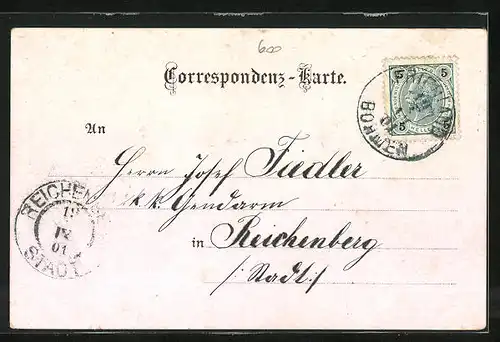 600
Correspondenz-Karte.
5 5
5
FRIEDLAND
BÖHMEN
An
Herrn Josef Fiedler
k. k. Gendarm
in Reichenberg
/: Stadt :/
REICHENB
19
IV
01
STADT